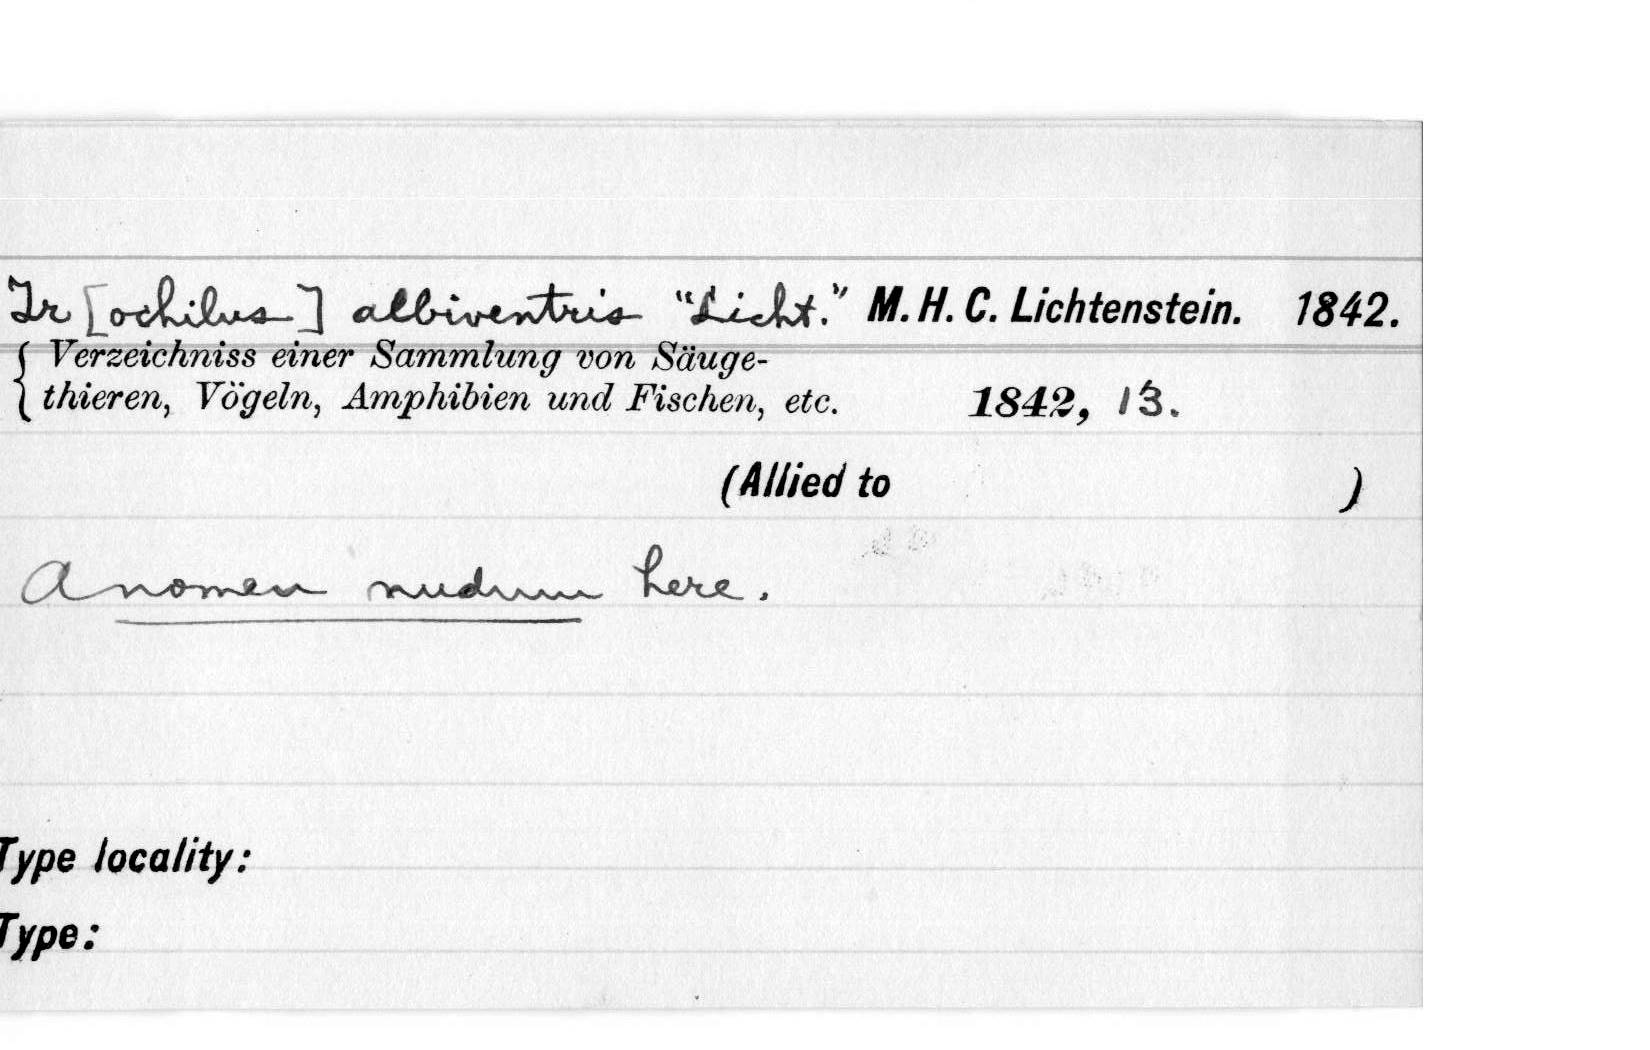 Tr [ochilus] albiventris "Licht." M. H. C. Lichtenstein. 1842.
Verzeichniss einer Sammlung von Säuge-
thieren, Vögeln, Amphibien und Fischen, etc. 1842, 13.
(Allied to )
A nomen nudum here.
Type locality:
Type: